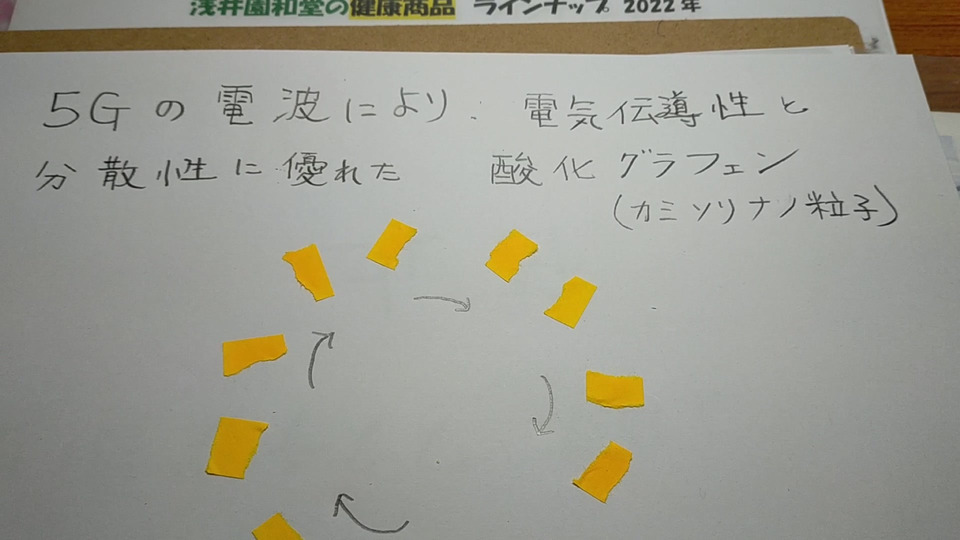 浅井園和堂の健康商品 ラインナップ 2022年
5Gの電波により. 電気伝導性と
分散性に優れた 酸化グラフェン
(カミソリナノ粒子)